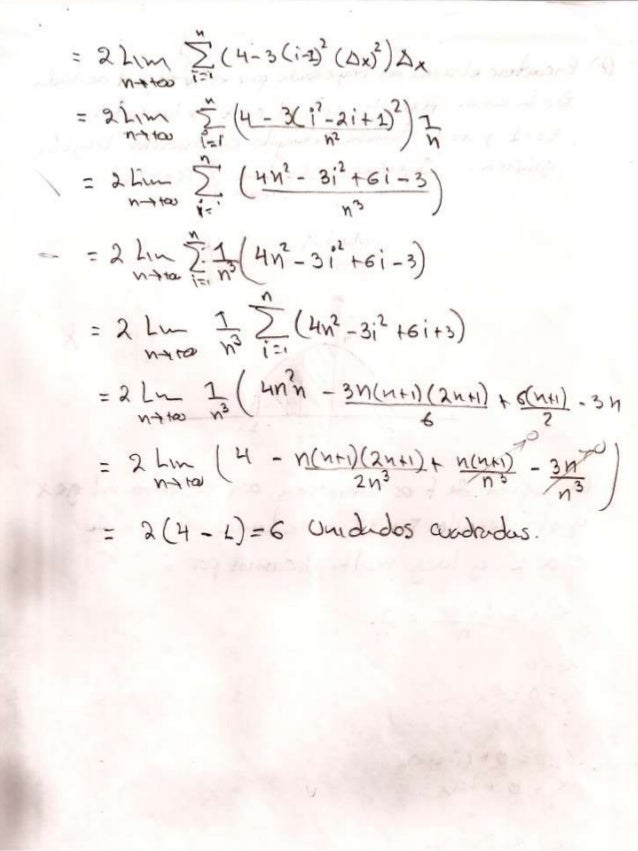 = 2 Lim n→+∞ n Σ i=1 (4-3(i-1)² (Δx)²) Δx
= 2 Lim n→+∞ n Σ i=1 (4 - 3(i²-2i+1)²/n²) 1/n
= 2 Lim n→+∞ n Σ i=1 (4n² - 3i² + 6i - 3 / n³)
= 2 Lim n→+∞ n Σ i=1 1/n³ (4n² - 3i² + 6i - 3)
= 2 Lim n→+∞ 1/n³ n Σ i=1 (4n² - 3i² + 6i + 3)
= 2 Lim n→+∞ 1/n³ (4n²n - 3n(n+1)(2n+1)/6 + 6(n+1)/2 - 3n
= 2 Lim n→+∞ (4 - n(n+1)(2n+1)/2n³ + n(n+1)/n³ →0 - 3n/n³ →0)
= 2(4 - 1) = 6 Unidados cuadradas.